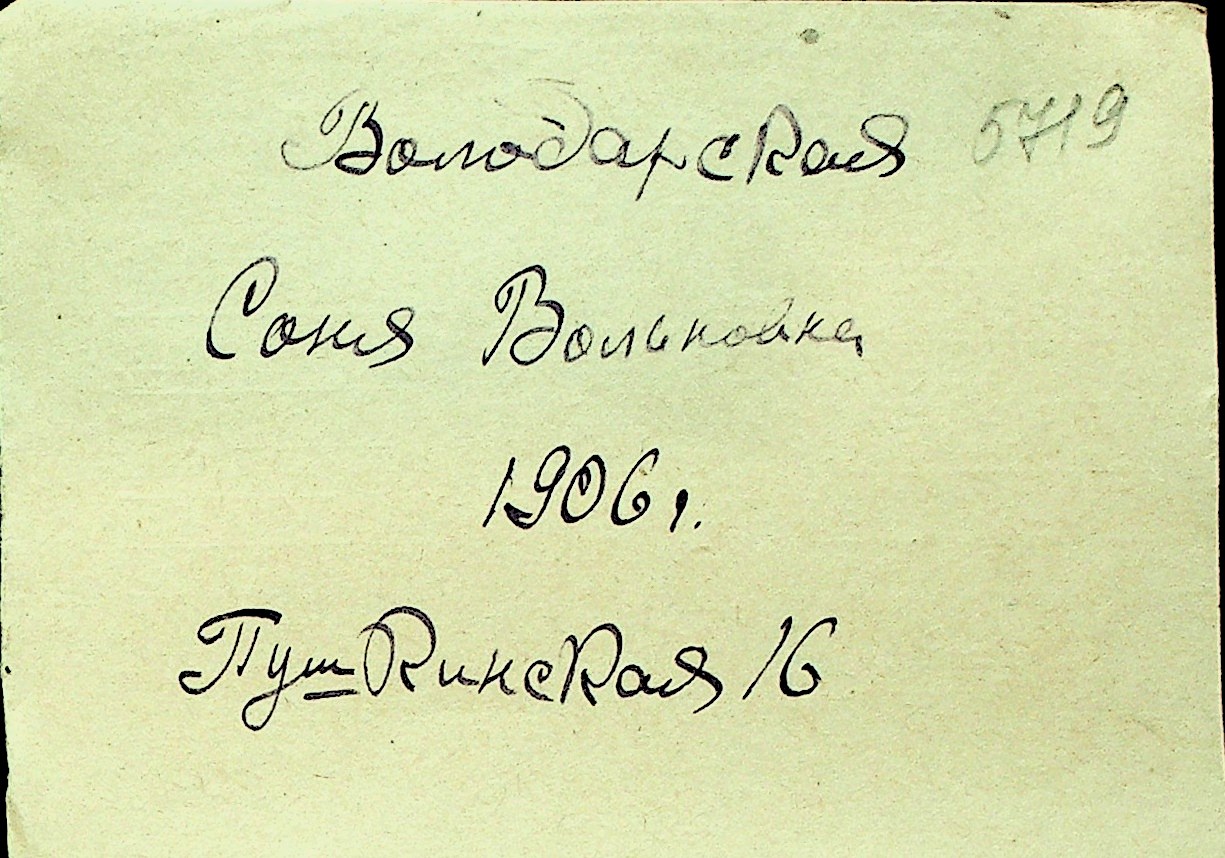 Володарская 5719
Соня Вольковна
1906 г.
Пушкинская 16